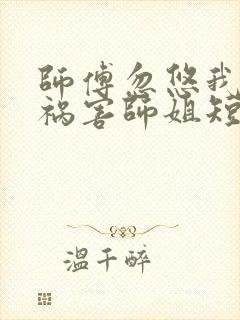 師傅忽悠我
祸害師姐短
溫千醉